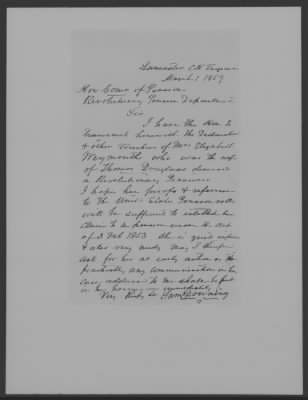 Lancaster C.H. Virginia
March 7 1859
Hon Comr of Pensions
Revolutionary Pension Department
Sir
I have the Hon to
transmit herewith the Declaration
& other Vouchers of Mrs Elizabeth
Weymouth who was the
of Thomas Douglass deceased
a Revolutionary Pensioner
I hope her proofs & reference
to the United States Pension rolls
will be sufficient to establish her
claim to a pension under the Act
of 3 Feb 1853 She is quite infirm
& also very needy May I therefore
ask for her as early action as
practicable, any communication in her
case addressed to me shall be put
in her immediately
Very Resp Saml Downing